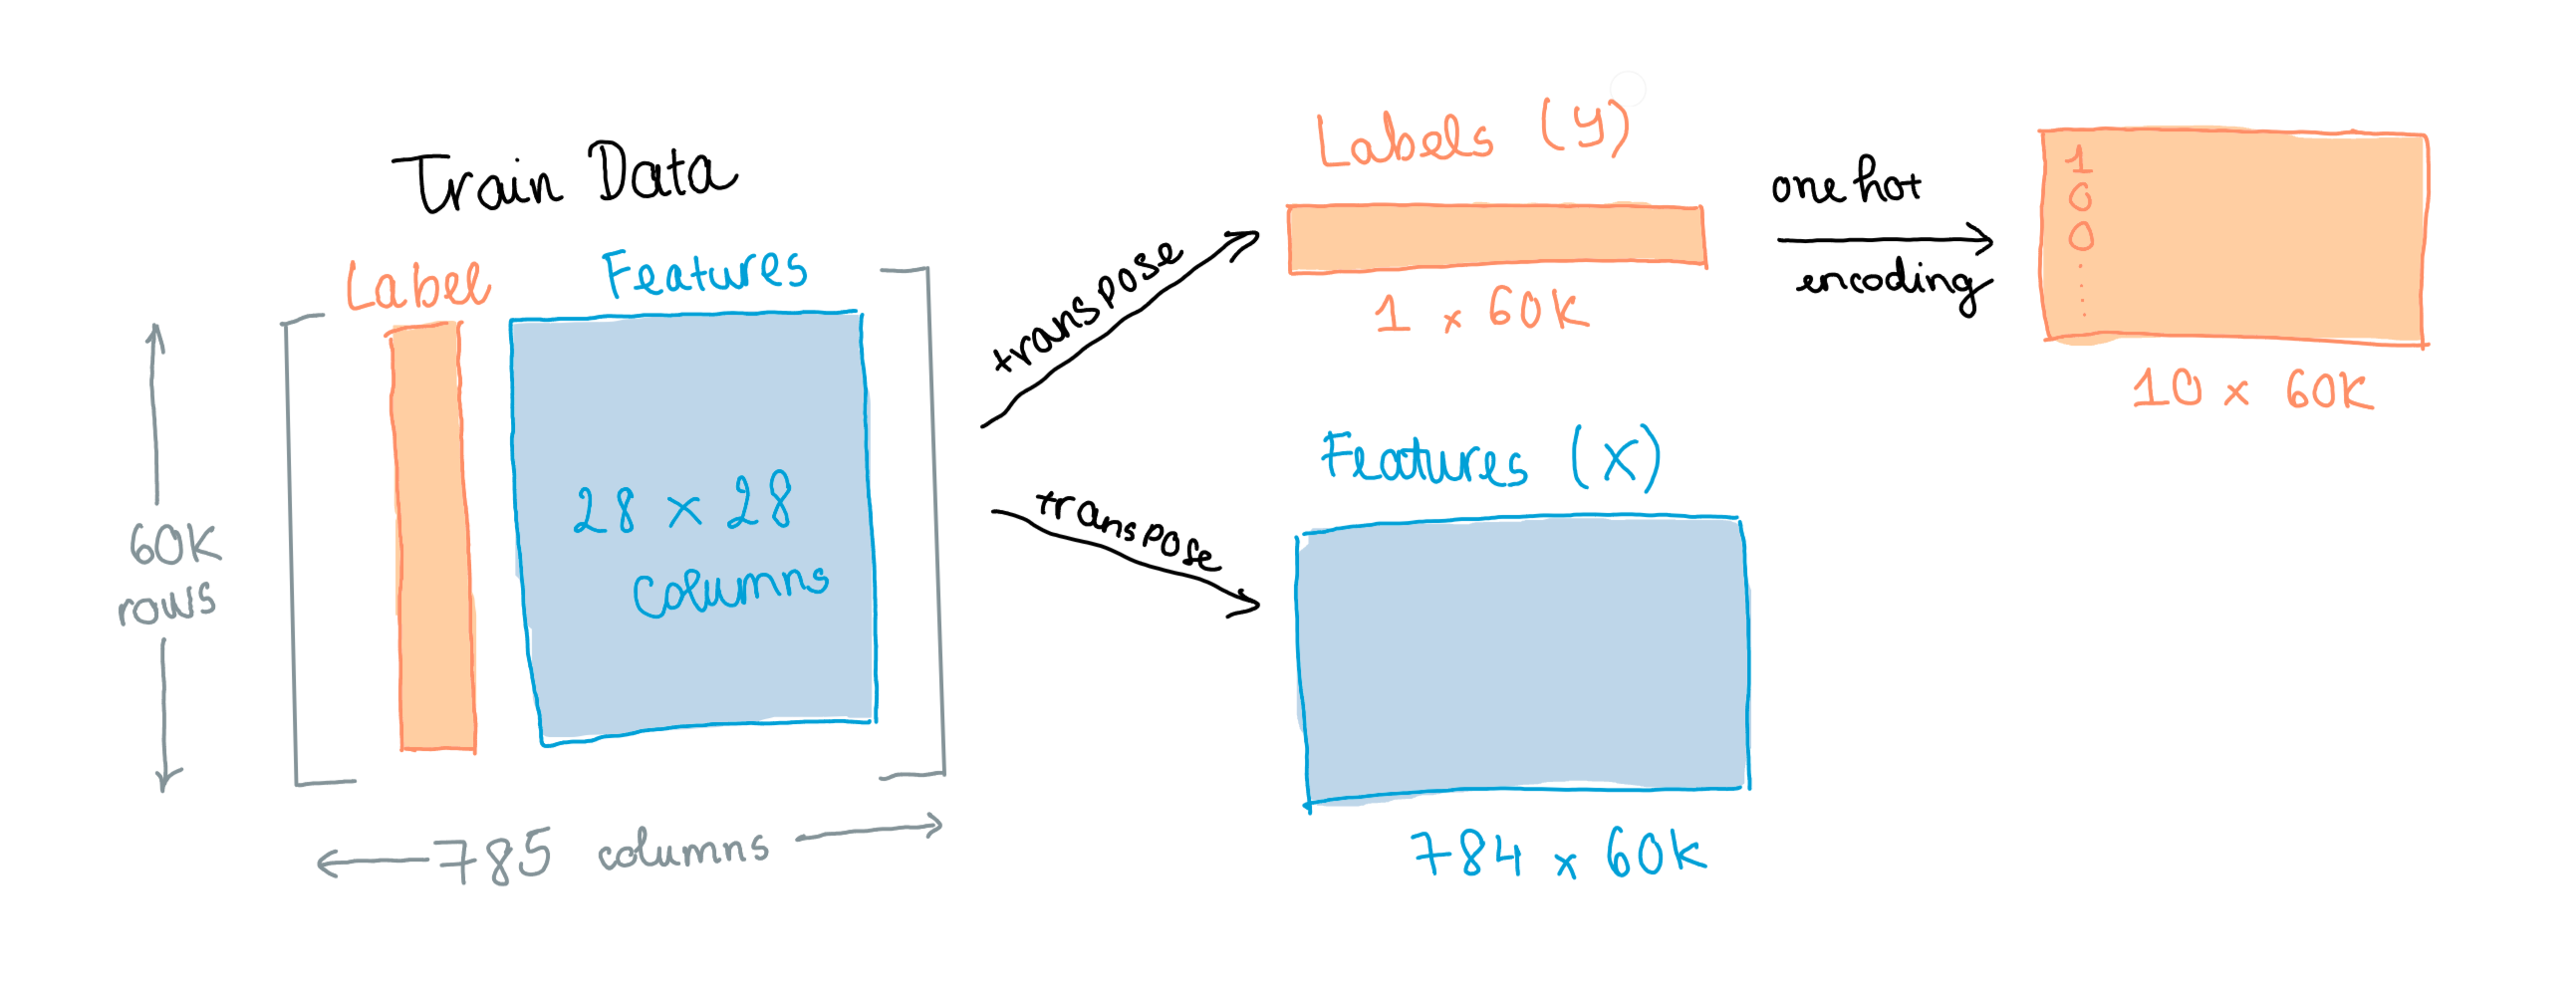 Train Data
Label
Features
28 x 28
columns
60K
rows
785 columns
transpose
transpose
Labels (y)
1 x 60K
one hot
encoding
1
0
0
10 x 60K
Features (X)
784 x 60K